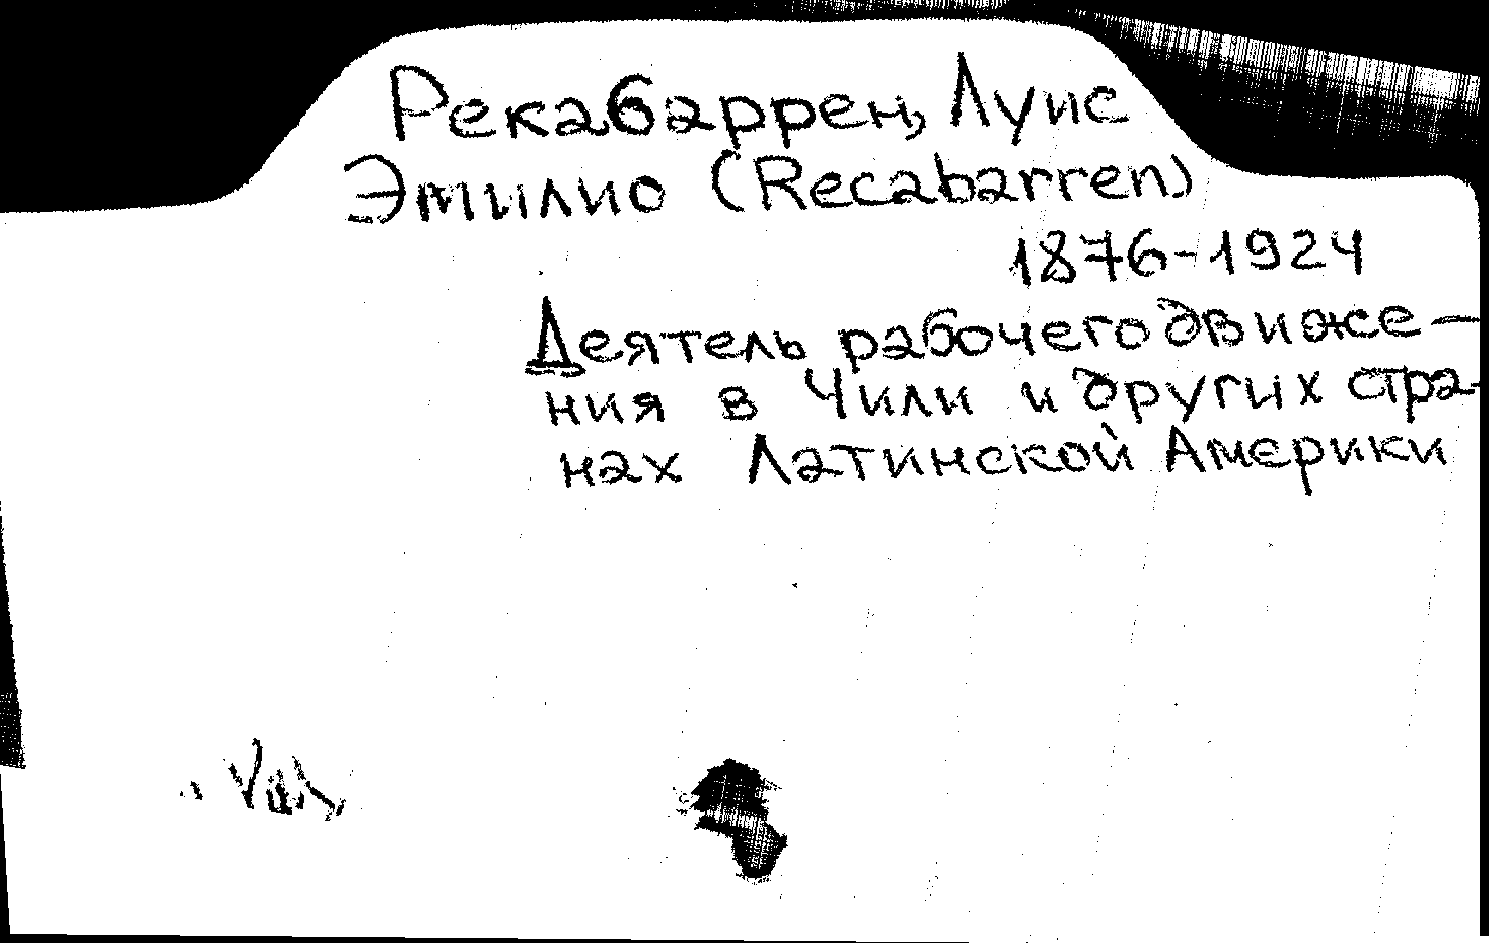 Рекабаррен, Луис
Эмилио (Recabarren)
1876-1924
Деятель рабочего движе-
ния в Чили и других стра-
нах Латинской Америки